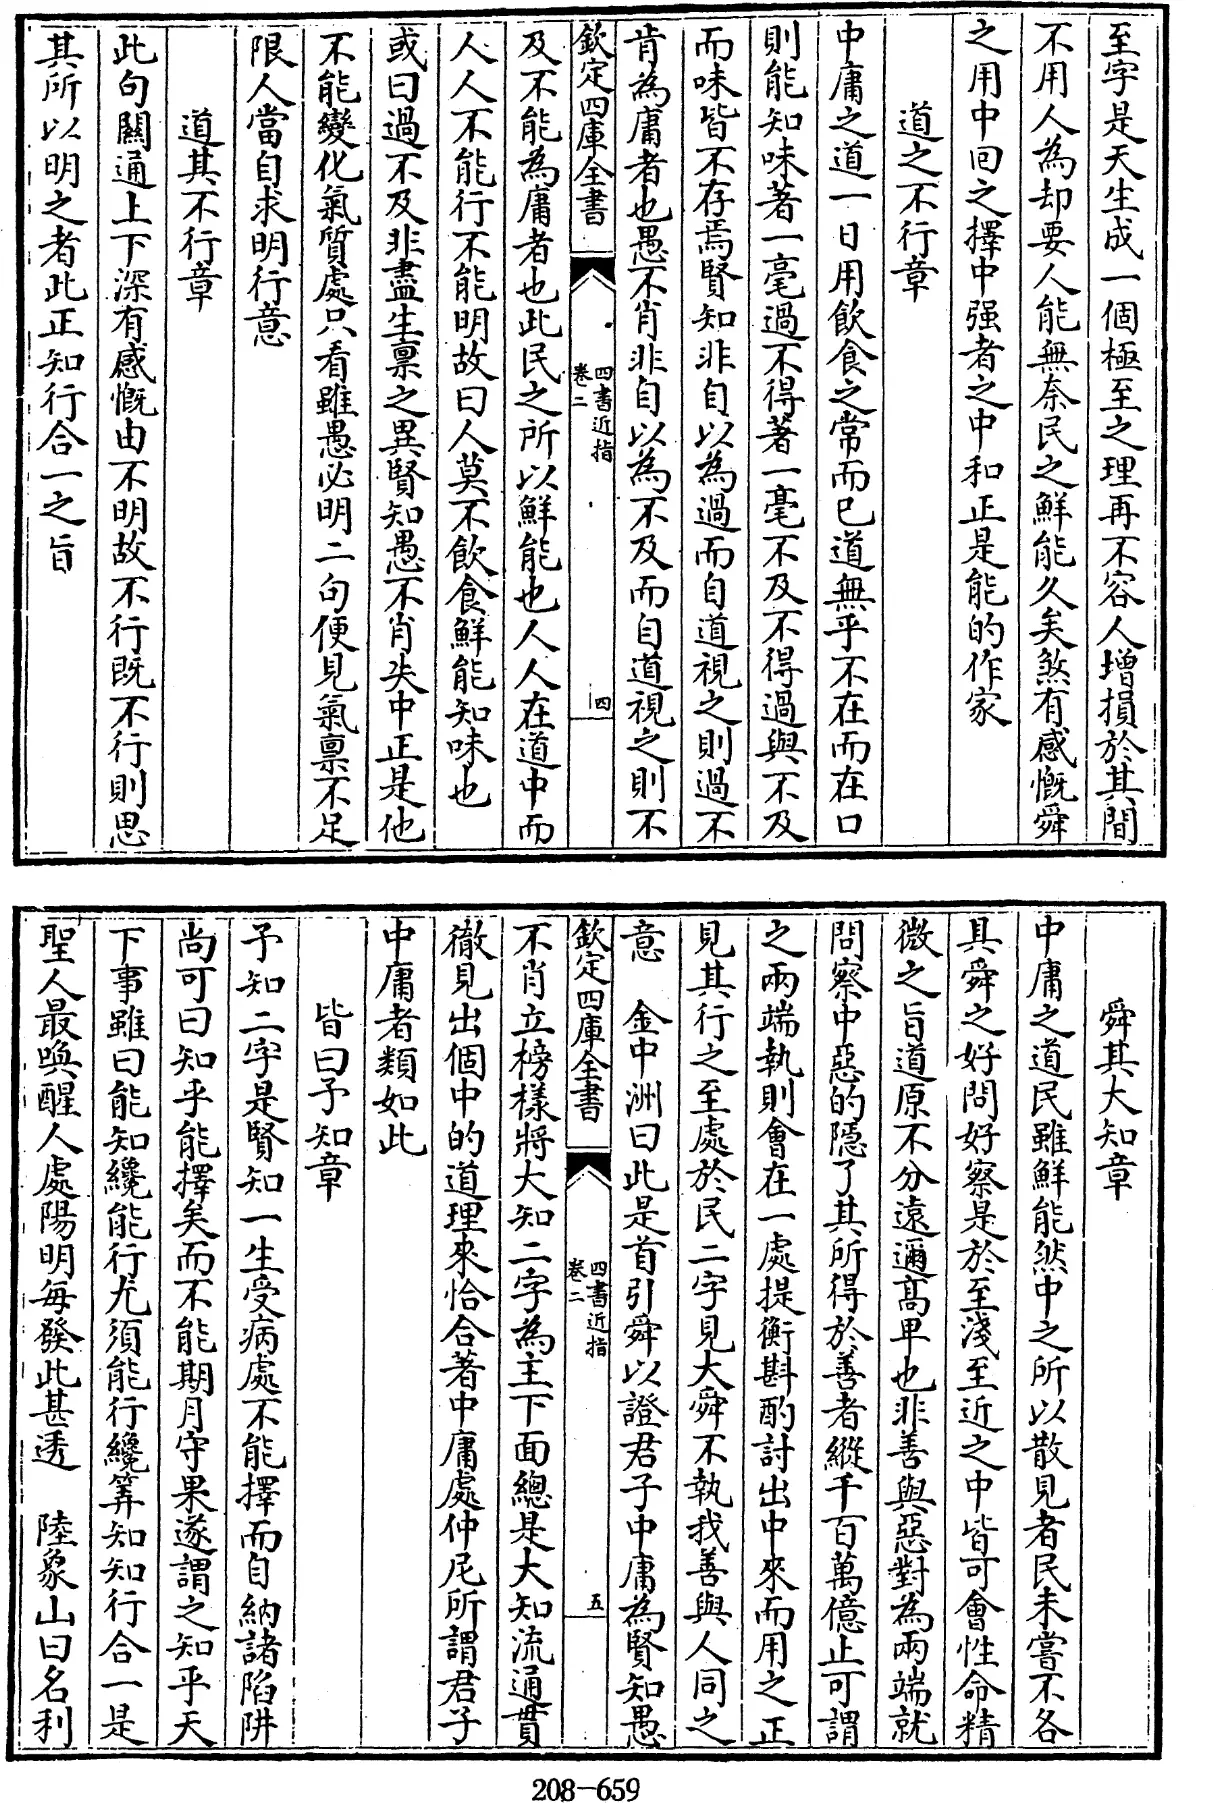 至字是天生成一個極至之理再不容人增損於其間
不用人為却要人能無奈民之鮮能久矣煞有感慨舜
之用中回之擇中强者之中和正是能的作家
道之不行章
中庸之道一日用飲食之常而已道無乎不在而在口
則能知味著一毫過不得著一毫不及不得過與不及
而味皆不存焉賢知非自以為過而自道視之則過不
肯為庸者也愚不肖非自以為不及而自道視之則不
欽定四庫全書
四書近指
卷二
四
及不能為庸者也此民之所以鮮能也人人在道中而
人人不能行不能明故曰人莫不飲食鮮能知味也
或曰過不及非盡生禀之異賢知愚不肖失中正是他
不能變化氣質處只看雖愚必明二句便見氣禀不足
限人當自求明行意
道其不行章
此句關通上下深有感慨由不明故不行既不行則思
其所以明之者此正知行合一之旨
舜其大知章
中庸之道民雖鮮能然中之所以散見者民未嘗不各
具舜之好問好察是於至淺至近之中皆可會性命精
微之旨道原不分遠邇高卑也非善與惡對為兩端就
問察中惡的隱了其所得於善者縱千百萬億止可謂
之兩端執則會在一處提衡斟酌討出中來而用之正
見其行之至處於民二字見大舜不執我善與人同之
意　金中洲曰此是首引舜以證君子中庸為賢知愚
欽定四庫全書
四書近指
卷二
五
不肖立榜樣將大知二字為主下面總是大知流通貫
徹見出個中的道理來恰合著中庸處仲尼所謂君子
中庸者類如此
皆曰予知章
予知二字是賢知一生受病處不能擇而自納諸陷阱
尚可曰知乎能擇矣而不能期月守果遂謂之知乎天
下事雖曰能知纔能行尤須能行纔筭知知行合一是
聖人最喚醒人處陽明每發此甚透　陸象山曰名利
208-659